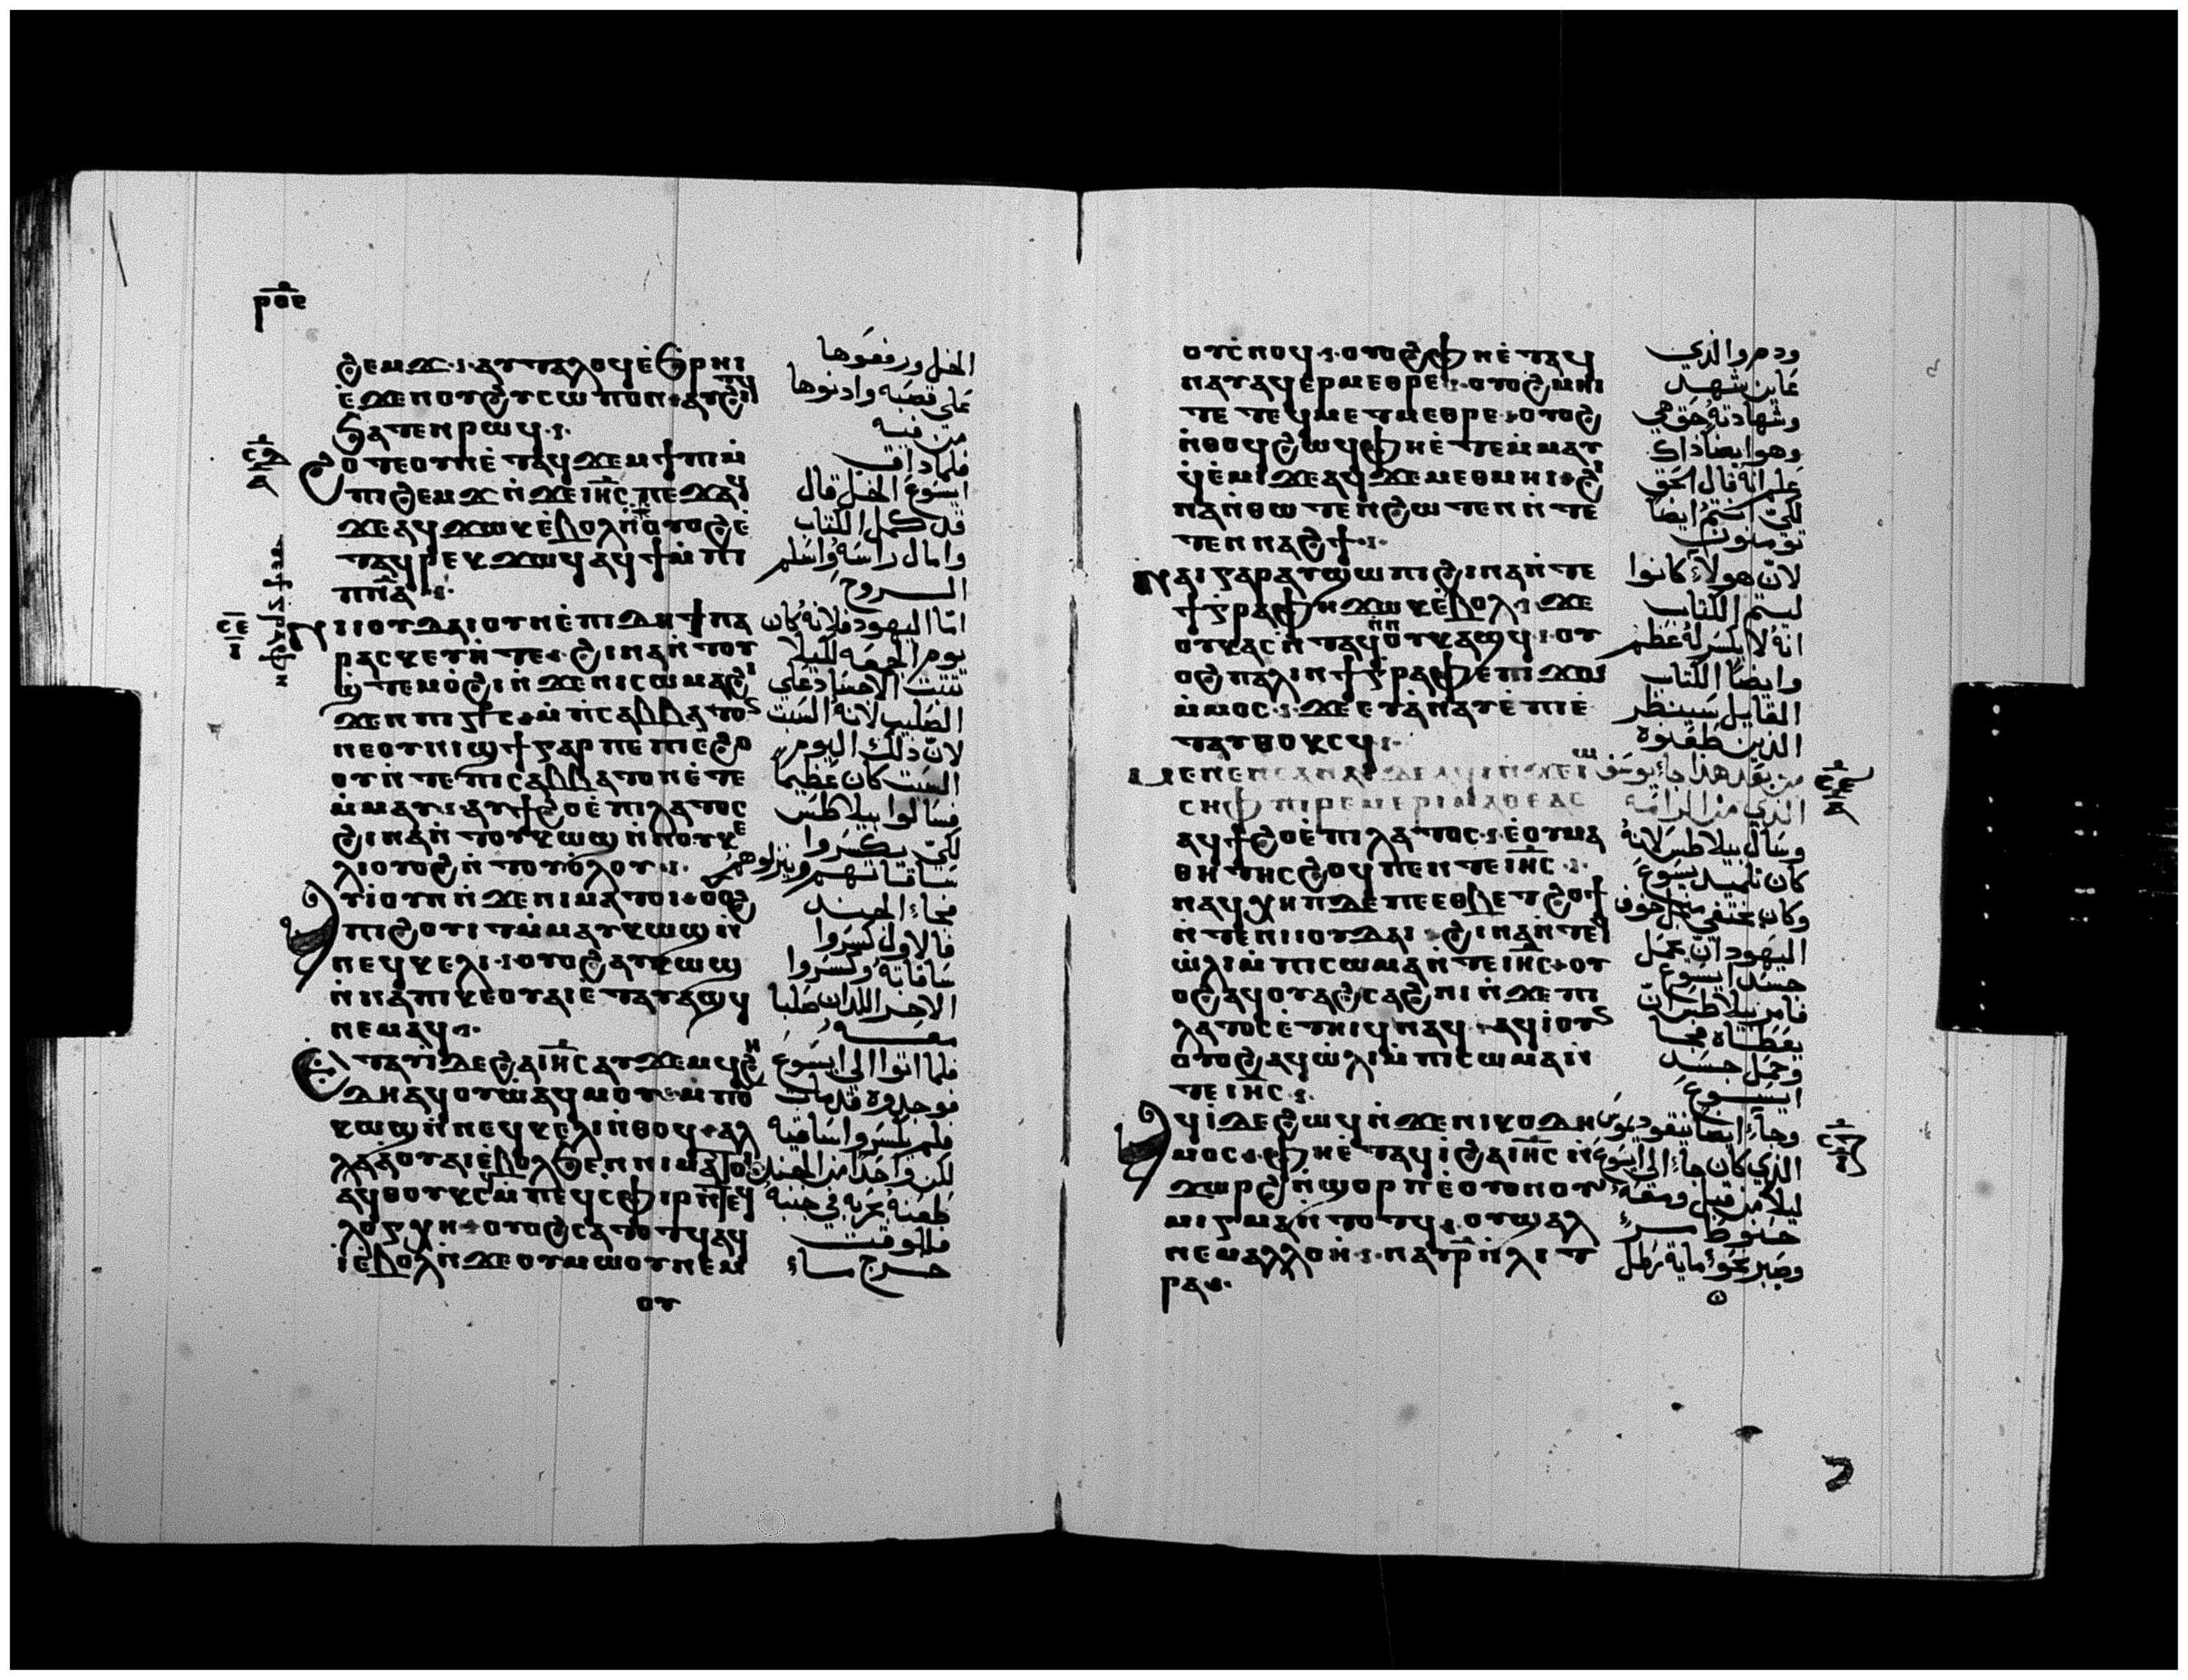 ⲣⲟⲉ
ϩⲉⲙϫ ⲁⲩⲧⲁⲗⲟϥ ⲉ̀ϧⲣⲏⲓ
ⲉ̀ϫⲉⲛ ⲟⲩϩⲩⲥⲥⲱⲡⲟⲛ ⲁⲩϩⲓⲧϥ
ϧⲁⲧⲉⲛ ⲣⲱϥ
ϩⲟⲧⲉ ⲟⲩⲛ ⲉ̀ⲧⲁϥϫⲉⲙϯⲡⲓ ⲙ̀
ⲡⲓϩⲉⲙϫ ⲛ̀ϫⲉ ⲓⲏⲥ ⲡⲉϫⲁϥ
ϫⲉ ⲁϥϫⲱⲕ ⲉ̀ⲃⲟⲗ ⲟⲩⲟϩ ⲉ̀
ⲧⲁϥⲣⲉⲕ ϫⲱϥ ⲁϥϯ ⲙ̀ⲡⲓ
ⲡⲛⲁ
ⲛⲓⲓⲟⲩⲇⲁⲓ ⲟⲩⲛ ⲉ̀ⲡⲓⲇⲏ ϯⲡⲁ
ⲣⲁⲥⲕⲉⲩⲏ ⲧⲉ ϩⲓⲛⲁ ⲛ̀ⲧⲟⲩ
ϣ̀ⲧⲉⲙⲟ̀ϩⲓ ⲛ̀ϫⲉ ⲛⲓⲥⲱⲙⲁ ϩⲓ
ϫⲉⲛ ⲡⲓⲥⲧⲥ ⲙ̀ⲡⲥⲁⲃⲃⲁⲧⲟⲥ
ⲛⲉ ⲟⲩⲛⲓϣϯ ⲅⲁⲣ ⲡⲉ ⲡⲓⲉ̀ϩⲟ
ⲟⲩ ⲛ̀ⲧⲉ ⲡⲓⲥⲁⲃⲃⲁⲧⲟⲛ ⲉ̀ⲧⲉ
ⲙ̀ⲙⲁⲩ ⲁⲩϯϩⲟ ⲉ̀ⲡⲓⲗⲁⲧⲟⲥ
ϩⲓⲛⲁ ⲛ̀ⲧⲟⲩⲕⲱϣ ⲛ̀ⲛⲟⲩⲕⲉ
ⲗⲓ ⲟⲩⲟϩ ⲛ̀ⲧⲟⲩⲟ̀ⲗⲟⲩ
ⲁⲩⲓ̀ ⲟⲩⲛ ⲛ̀ϫⲉ ⲛⲓⲙⲁⲧⲟⲓ ⲟⲟϩ
ⲡⲓϩⲟⲩⲓⲧ ⲙ̀ⲙⲁⲩⲕⲱϣ ⲛ̀
ⲛⲉϥⲕⲉⲗⲓ ⲟⲩⲟϩ ⲁⲩⲕⲱϣ
ⲛ̀ⲛⲁ ⲡⲓⲕⲉⲟⲩⲁⲓ ⲉ̀ⲧⲁⲩⲁϣϥ
ⲛⲉⲙⲁϥ
ⲉⲧⲁⲩⲓ̀ ⲇⲉ ϩⲁ ⲓⲏⲥ ⲁⲩϫⲉⲙϥ ϩⲏ
ⲇⲏ ⲁϥⲟⲩⲱ ⲁϥⲙⲟⲩ ⲙ̀ⲡⲟⲩ
ⲕⲱϣ ⲛ̀ⲛⲉϥⲕⲉⲗⲓ ⲛ̀ⲑⲟϥ ⲁⲗ
ⲗⲁ ⲁⲟⲩⲁⲓ ⲉ̀ⲃⲟⲗ ϧⲉⲛ ⲛⲓⲙⲁⲧⲟⲓ
ⲁϥⲑⲟⲩⲕⲥ ⲙ̀ⲡⲉϥⲥⲫⲓⲣ ⲛ̀ϯ
ⲗⲟⲅⲭⲏ ⲟⲩⲟϩ ⲥⲁⲧⲟⲧϥ ⲁϥ
ⲓ̀ ⲉ̀ⲃⲟⲗ ⲛ̀ϫⲉ ⲟⲩⲙⲱⲟⲩ ⲛⲉⲙ
ⲟⲩ
الخل ورفعوها
على قصبه وادنوها
من فيه
فلما ذاق
ايسوع الخل قال
قد كمل الكتاب
وامال راسه واسلم
الروح
امّا اليهود فلانه كان
يوم الجمعه لكيلا
تثبت الاجساد على
الصليب لانه السبت
لانّ ذلك اليوم
السبت كان عظيما
فسالوا بيلاطس
لكي يكسروا
ساقاتهم وينزلوهم
فجاء الجند
فالاول كسروا
ساقاته وكسروا
الاخر اللذان صلبا
معه
فلما اتوا الى ايسوع
فوجدوه قد مات
فلم يكسروا ساقيه
لكن واحدا من الجند
طعنه بحربه في جنبه
فللوقت
خرج ماء
ⲟⲩⲥ̀ⲛⲟϥ ⲟⲩⲟϩ ⲫⲏ ⲉ̀ⲧⲁϥ
ⲛⲁⲩ ⲁϥⲉⲣⲙⲉⲑⲣⲉ ⲟⲩⲟϩ ⲙⲏⲓ
ⲧⲉ ⲧⲉϥⲙⲉⲧⲙⲉⲑⲣⲉ ⲟⲩⲟϩ
ⲛ̀ⲑⲟϥ ϩⲱϥ ⲫⲏ ⲉ̀ⲧⲉⲙ̀ⲙⲁⲩ
ϥ̀ⲉ̀ⲙⲓ ϫⲉ ⲁϥϫⲉ ⲙⲉⲑⲙⲏⲓ ϩⲓ
ⲛⲁ ⲛ̀ⲑⲱⲧⲉⲛ ϩⲱⲧⲉⲛ ⲛ̀ⲧⲉ
ⲧⲉⲛⲛⲁϩϯ
ⲛⲁⲓ ⲅⲁⲣ ⲁⲩϣⲱⲡⲓ ϩⲓⲛⲁ ⲛ̀ⲧⲉ
ϯⲅⲣⲁⲫⲏ ϫⲱⲕ ⲉ̀ⲃⲟⲗ ϫⲉ
ⲟⲩⲕⲁⲥ ⲛ̀ⲧⲁϥ ⲛ̀ⲛⲟⲩⲕⲁϣϥ ⲟⲩ
ⲟϩ ⲡⲁⲗⲓⲛ ϯⲅⲣⲁⲫⲏ ⲉⲧϫⲱ
ⲙ̀ⲙⲟⲥ ϫⲉ ⲉⲩⲉ̀ⲛⲁⲩ ⲉ̀ⲫⲏ ⲉ̀
ⲧⲁⲩⲑⲟⲩⲕⲥϥ
ⲙⲉⲛⲉⲛⲥⲁ ⲛⲁⲓ ⲇⲉ ⲁϥⲓ̀ ⲛ̀ϫⲉ ⲓⲱ
ⲥⲏⲫ ⲡⲓⲣⲉⲙⲉⲣⲓⲙⲁⲑⲉⲁⲥ
ⲁϥϯϩⲟ ⲉ̀ⲡⲓⲗⲁⲧⲟⲥ ⲉ̀ⲟⲩⲙⲁ
ⲑⲏⲧⲏⲥ ϩⲱϥ ⲡⲉ ⲛ̀ⲧⲉ ⲓⲏⲥ
ⲛⲁϥⲭⲏⲡ ⲇⲉ ⲡⲉ ⲉⲑⲃⲉ ⲧ̀ϩⲟϯ
ⲛ̀ⲧⲉ ⲛⲓⲓⲟⲩⲇⲁⲓ ϩⲓⲛⲁ ⲛ̀ⲧⲉϥ
ⲱ̀ⲗⲓ ⲙ̀ⲡⲓⲥⲱⲙⲁ ⲛ̀ⲧⲉ ⲓⲏⲥ ⲟⲩ
ⲟϩ ⲁϥⲟⲩⲁϩⲥⲁϩⲛⲓ ⲛ̀ϫⲉ ⲡⲓ
ⲗⲁⲧⲟⲥ ⲉ̀ⲧⲏⲓϥ ⲛⲁϥ ⲁϥⲓ̀ ⲟⲩⲛ
ⲟⲩⲟϩ ⲁϥⲱ̀ⲗⲓ ⲙ̀ⲡⲓⲥⲱⲙⲁ ⲛ̀
ⲧⲉ ⲓⲏⲥ
ⲁϥⲓ̀ ⲇⲉ ϩⲱϥ ⲛ̀ϫⲉ ⲛⲓⲕⲟⲇⲏ
ⲙⲟⲥ ⲫⲏ ⲉ̀ⲧⲁϥⲓ̀ ϩⲁ ⲓⲏⲥ ⲛ̀
ϫⲱⲣϩ ⲛ̀ϣⲟⲣⲡ ⲉ̀ⲟⲩⲟⲛ ⲟⲩ
ⲙⲓⲅⲙⲁ ⲛ̀ⲧⲟⲧϥ ⲟⲩϣⲁⲗ
ⲛⲉⲙ ⲁⲗⲗⲟⲏ ⲛⲁⲩⲣ ⲛ̀ⲗⲓⲧ
ⲣⲁ
ودم والذي
عاين شهد
وشهادته حق هي
وهو ايضا ذاك
علم انه قال الحق
لكي انتم ايضا
تومنون
لانّ هولاء كانوا
ليتم الكتاب
انه لا يكسر له عظم
وايضا الكتاب
القايل سينظر
الذين طعنوه
من بعد هذا جاء يوسف
الذي من الرامه
وسال بيلاطس لانه
كان تلميد يسوع
وكان مختفي من اجل خوف
اليهود انّ يحمل
جسد ايسوع
فامر بيلاطس انّ
يعطاه فجا
وحمل جسد
ايسوع
وجاء ايضا نيقوديموس
الذي كان جاء الى ايسوع
ليلا من قبل ومعه
حنوط مر
وصبر نحو ماية رطل